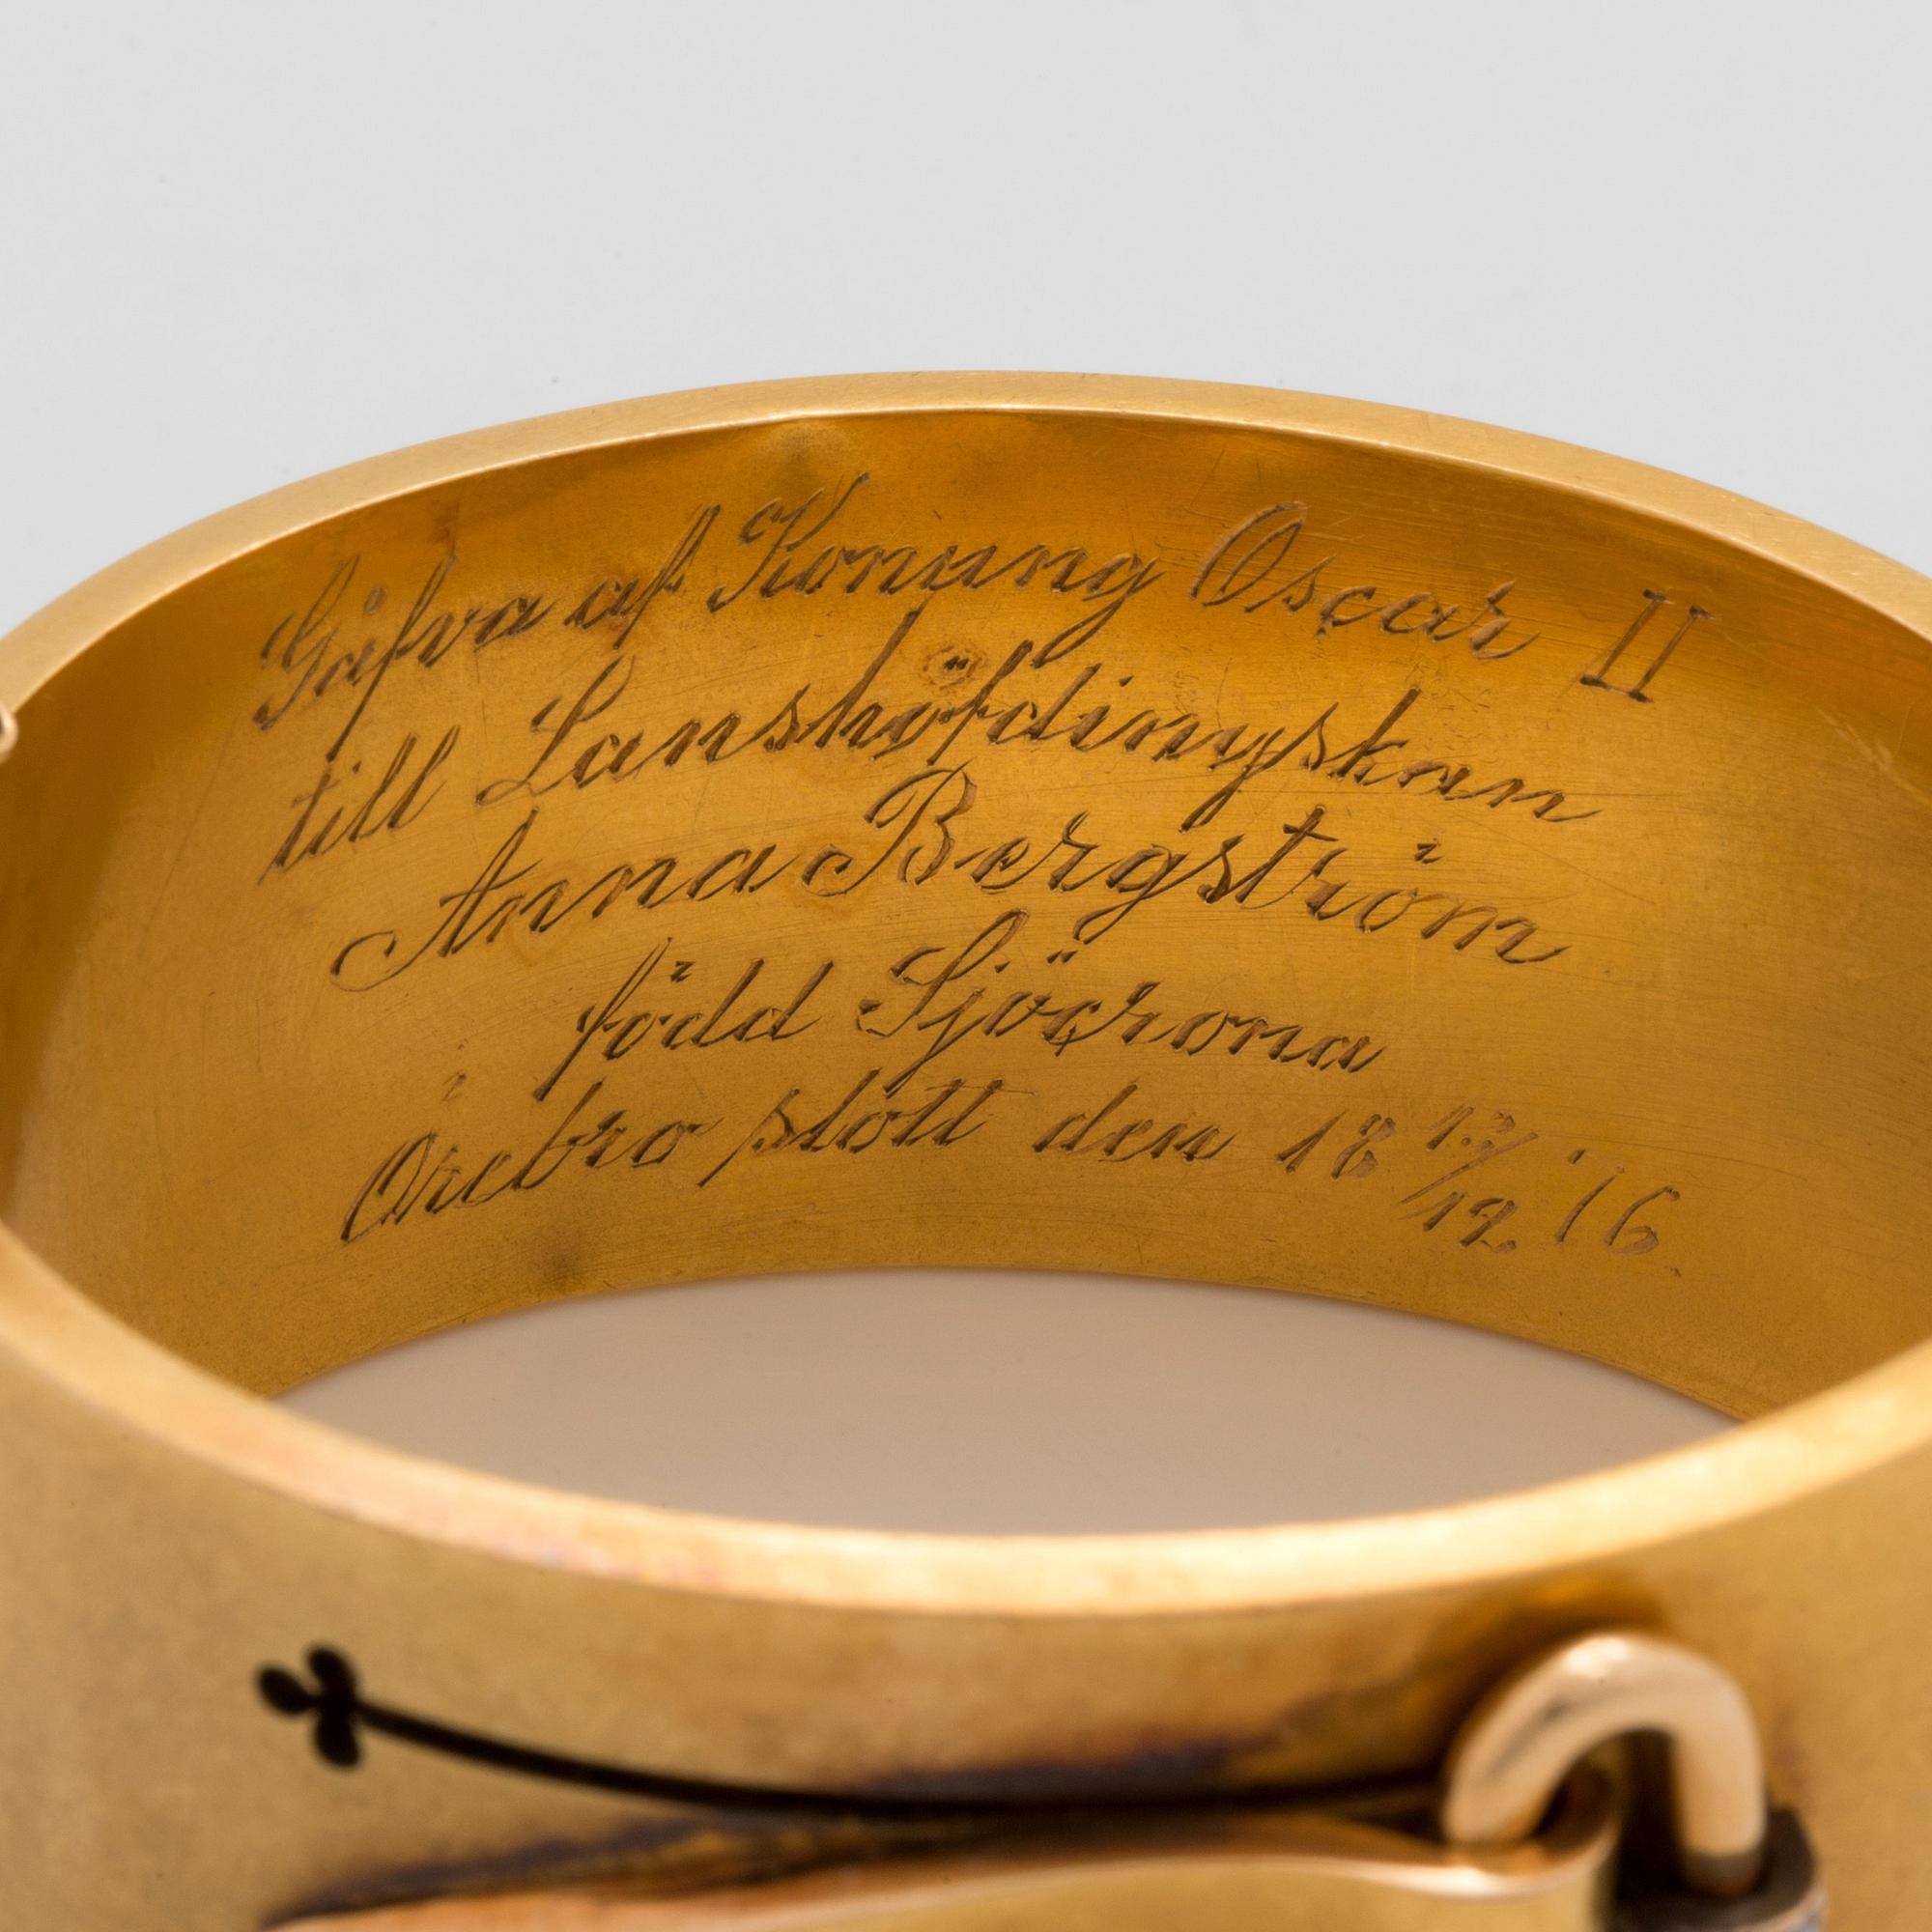 Gåfva af Konung Oscar II
till Lanshöfdingskan
Anna Bergström
född Sjöcrona
Örebro slott den 18 12/12 76